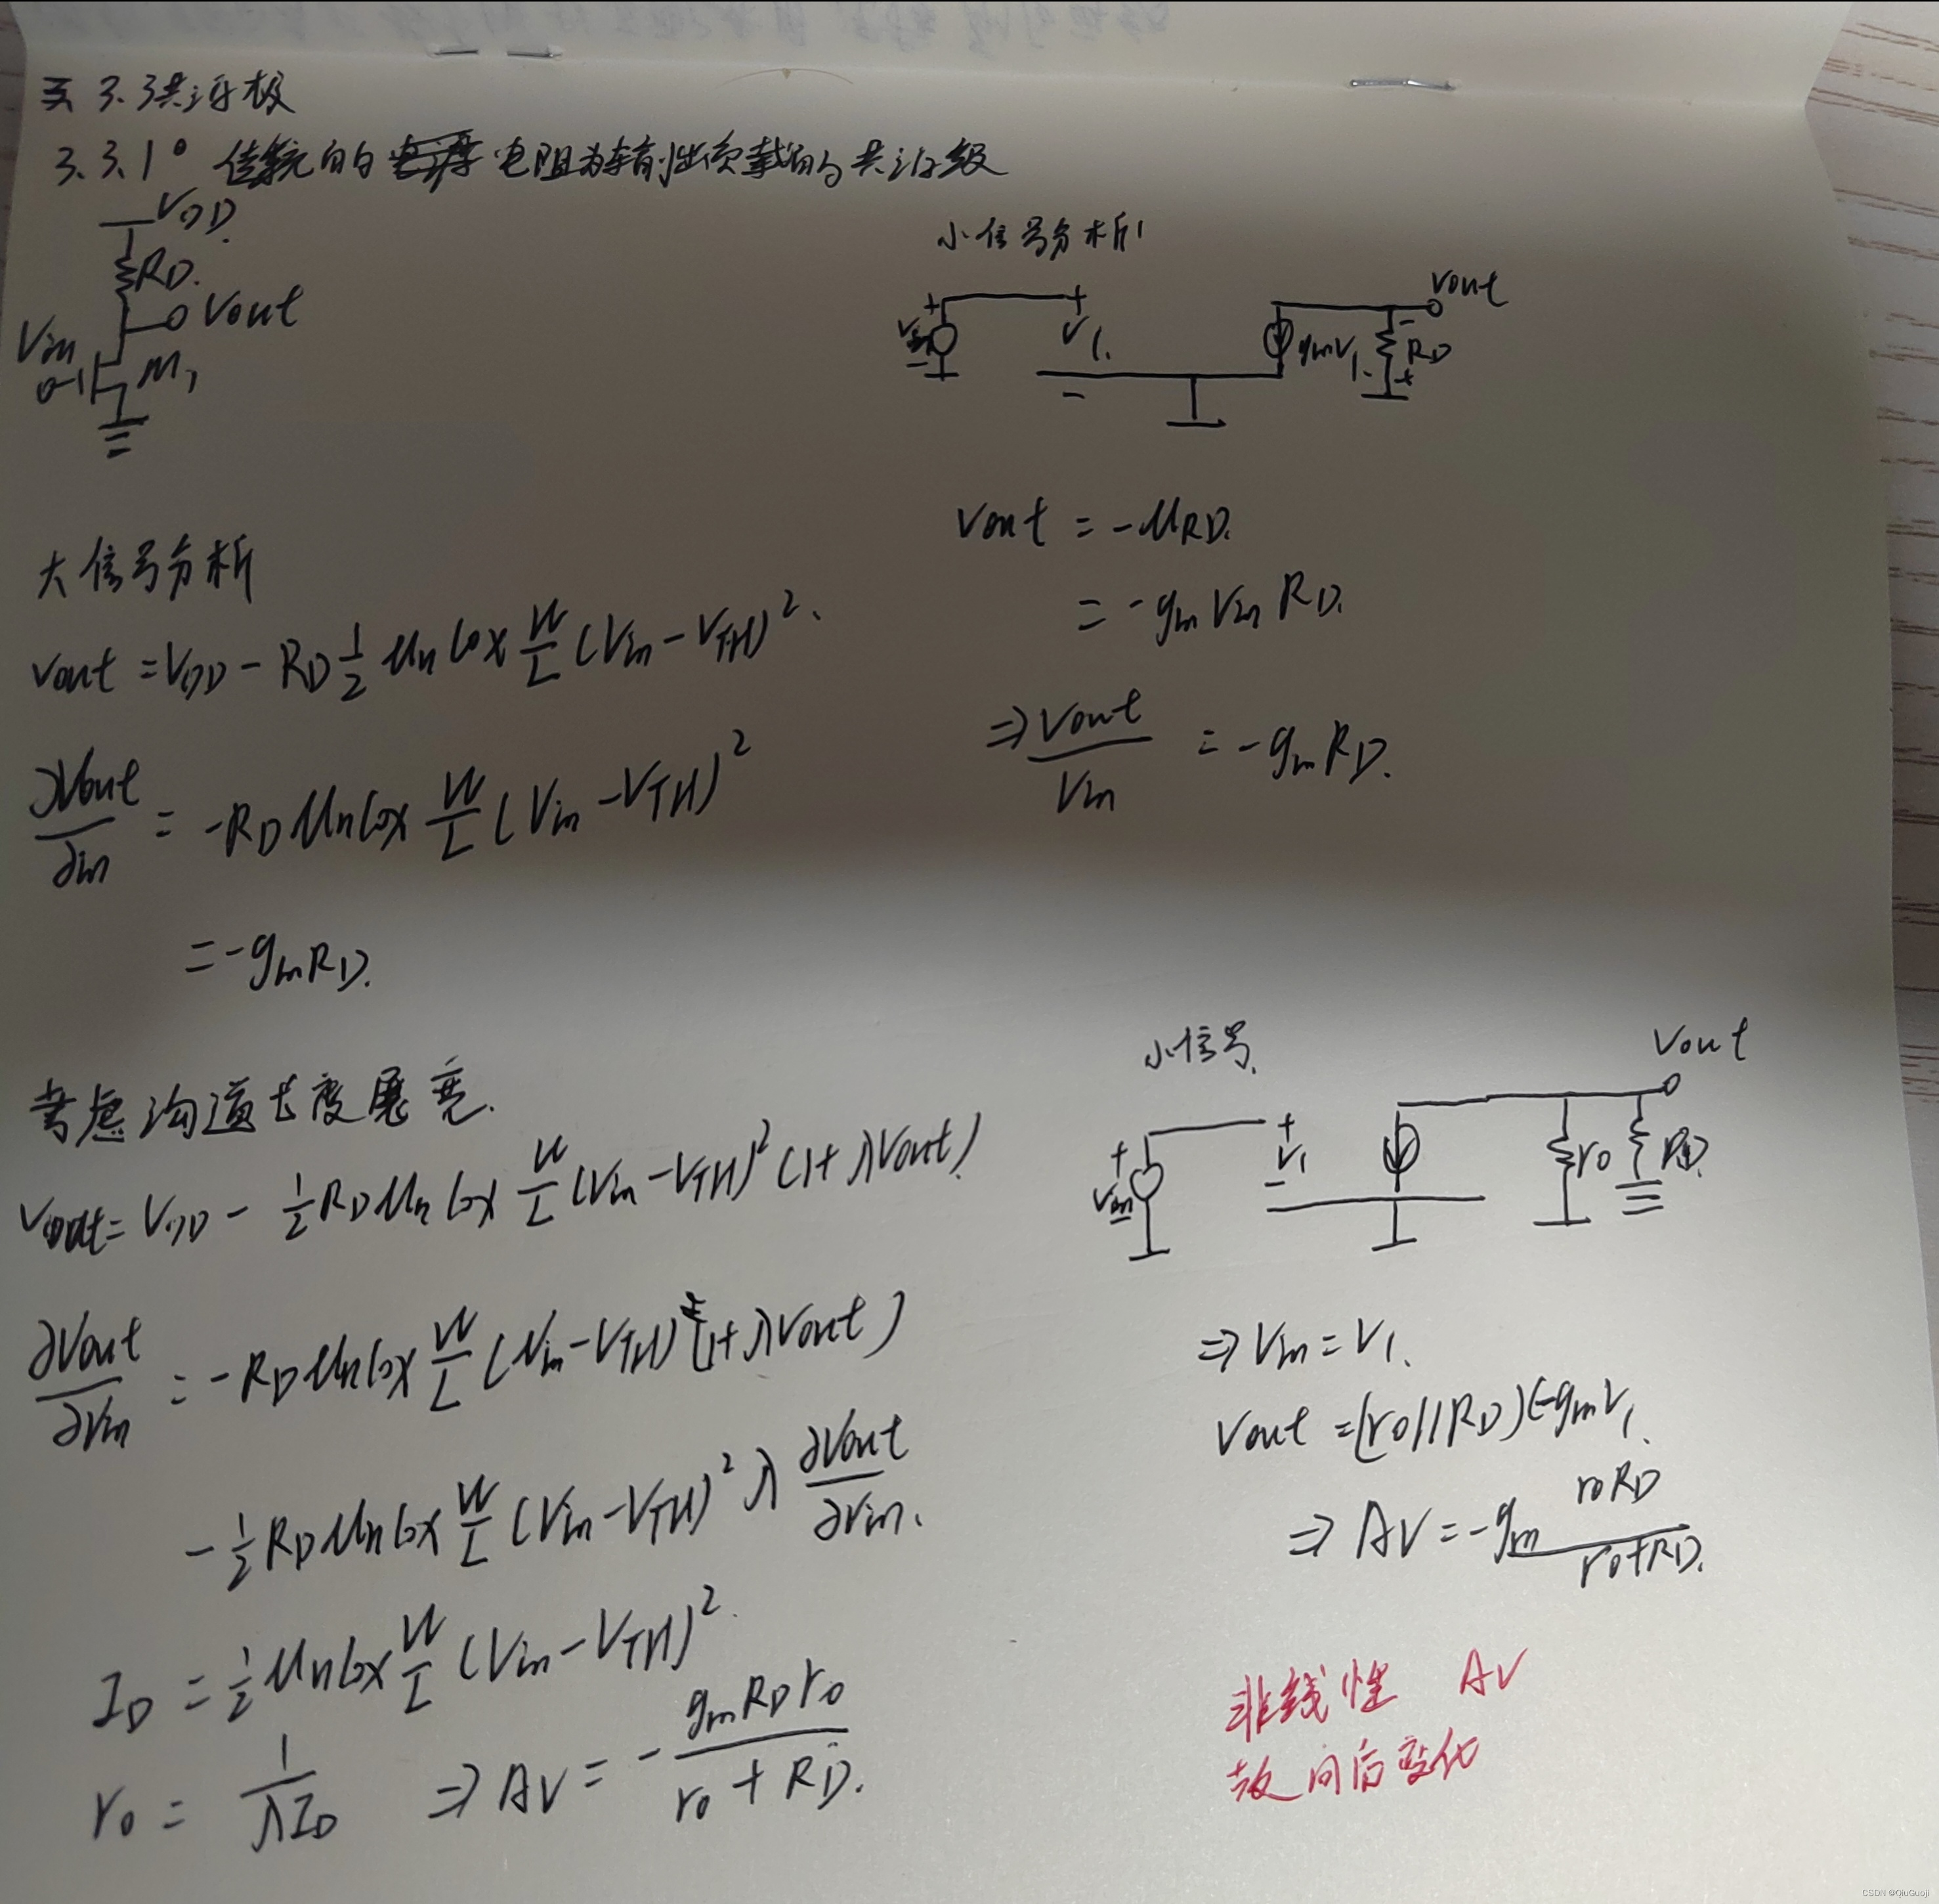 3.3共源极
3.3.1° 传统的 电阻为输出负载的共源级
VDD
RD.
Vout
Vin
M1
小信号分析
+ + Vout
Vin V1. gmV1. - RD
- - +
大信号分析
Vout = VDD - RD 1/2 μn Cox W/L (Vin - VTH)².
∂Vout/∂in = -RD μn Cox W/L (Vin - VTH)²
= -gmRD.
Vout = -μRD.
= -gm Vin RD.
⇒ Vout/Vin = -gmRD.
考虑沟道长度展宽.
Vout = VDD - 1/2 RD μn Cox W/L (Vin - VTH)² (1+λVout)
∂Vout/∂Vin = -RD μn Cox W/L (Vin - VTH) (1+λVout)
- 1/2 RD μn Cox W/L (Vin - VTH)² λ ∂Vout/∂Vin.
ID = 1/2 μn Cox W/L (Vin - VTH)².
ro = 1/λID ⇒ AV = - gmRDro/ro + RD.
小信号.
Vout
+ + V1 - ro RD
Vin
⇒ Vin = V1.
Vout = (ro//RD)(-gmV1.
⇒ AV = -gm roRD/ro+RD.
非线性 AV
变化
CSDN @QiuGuoji